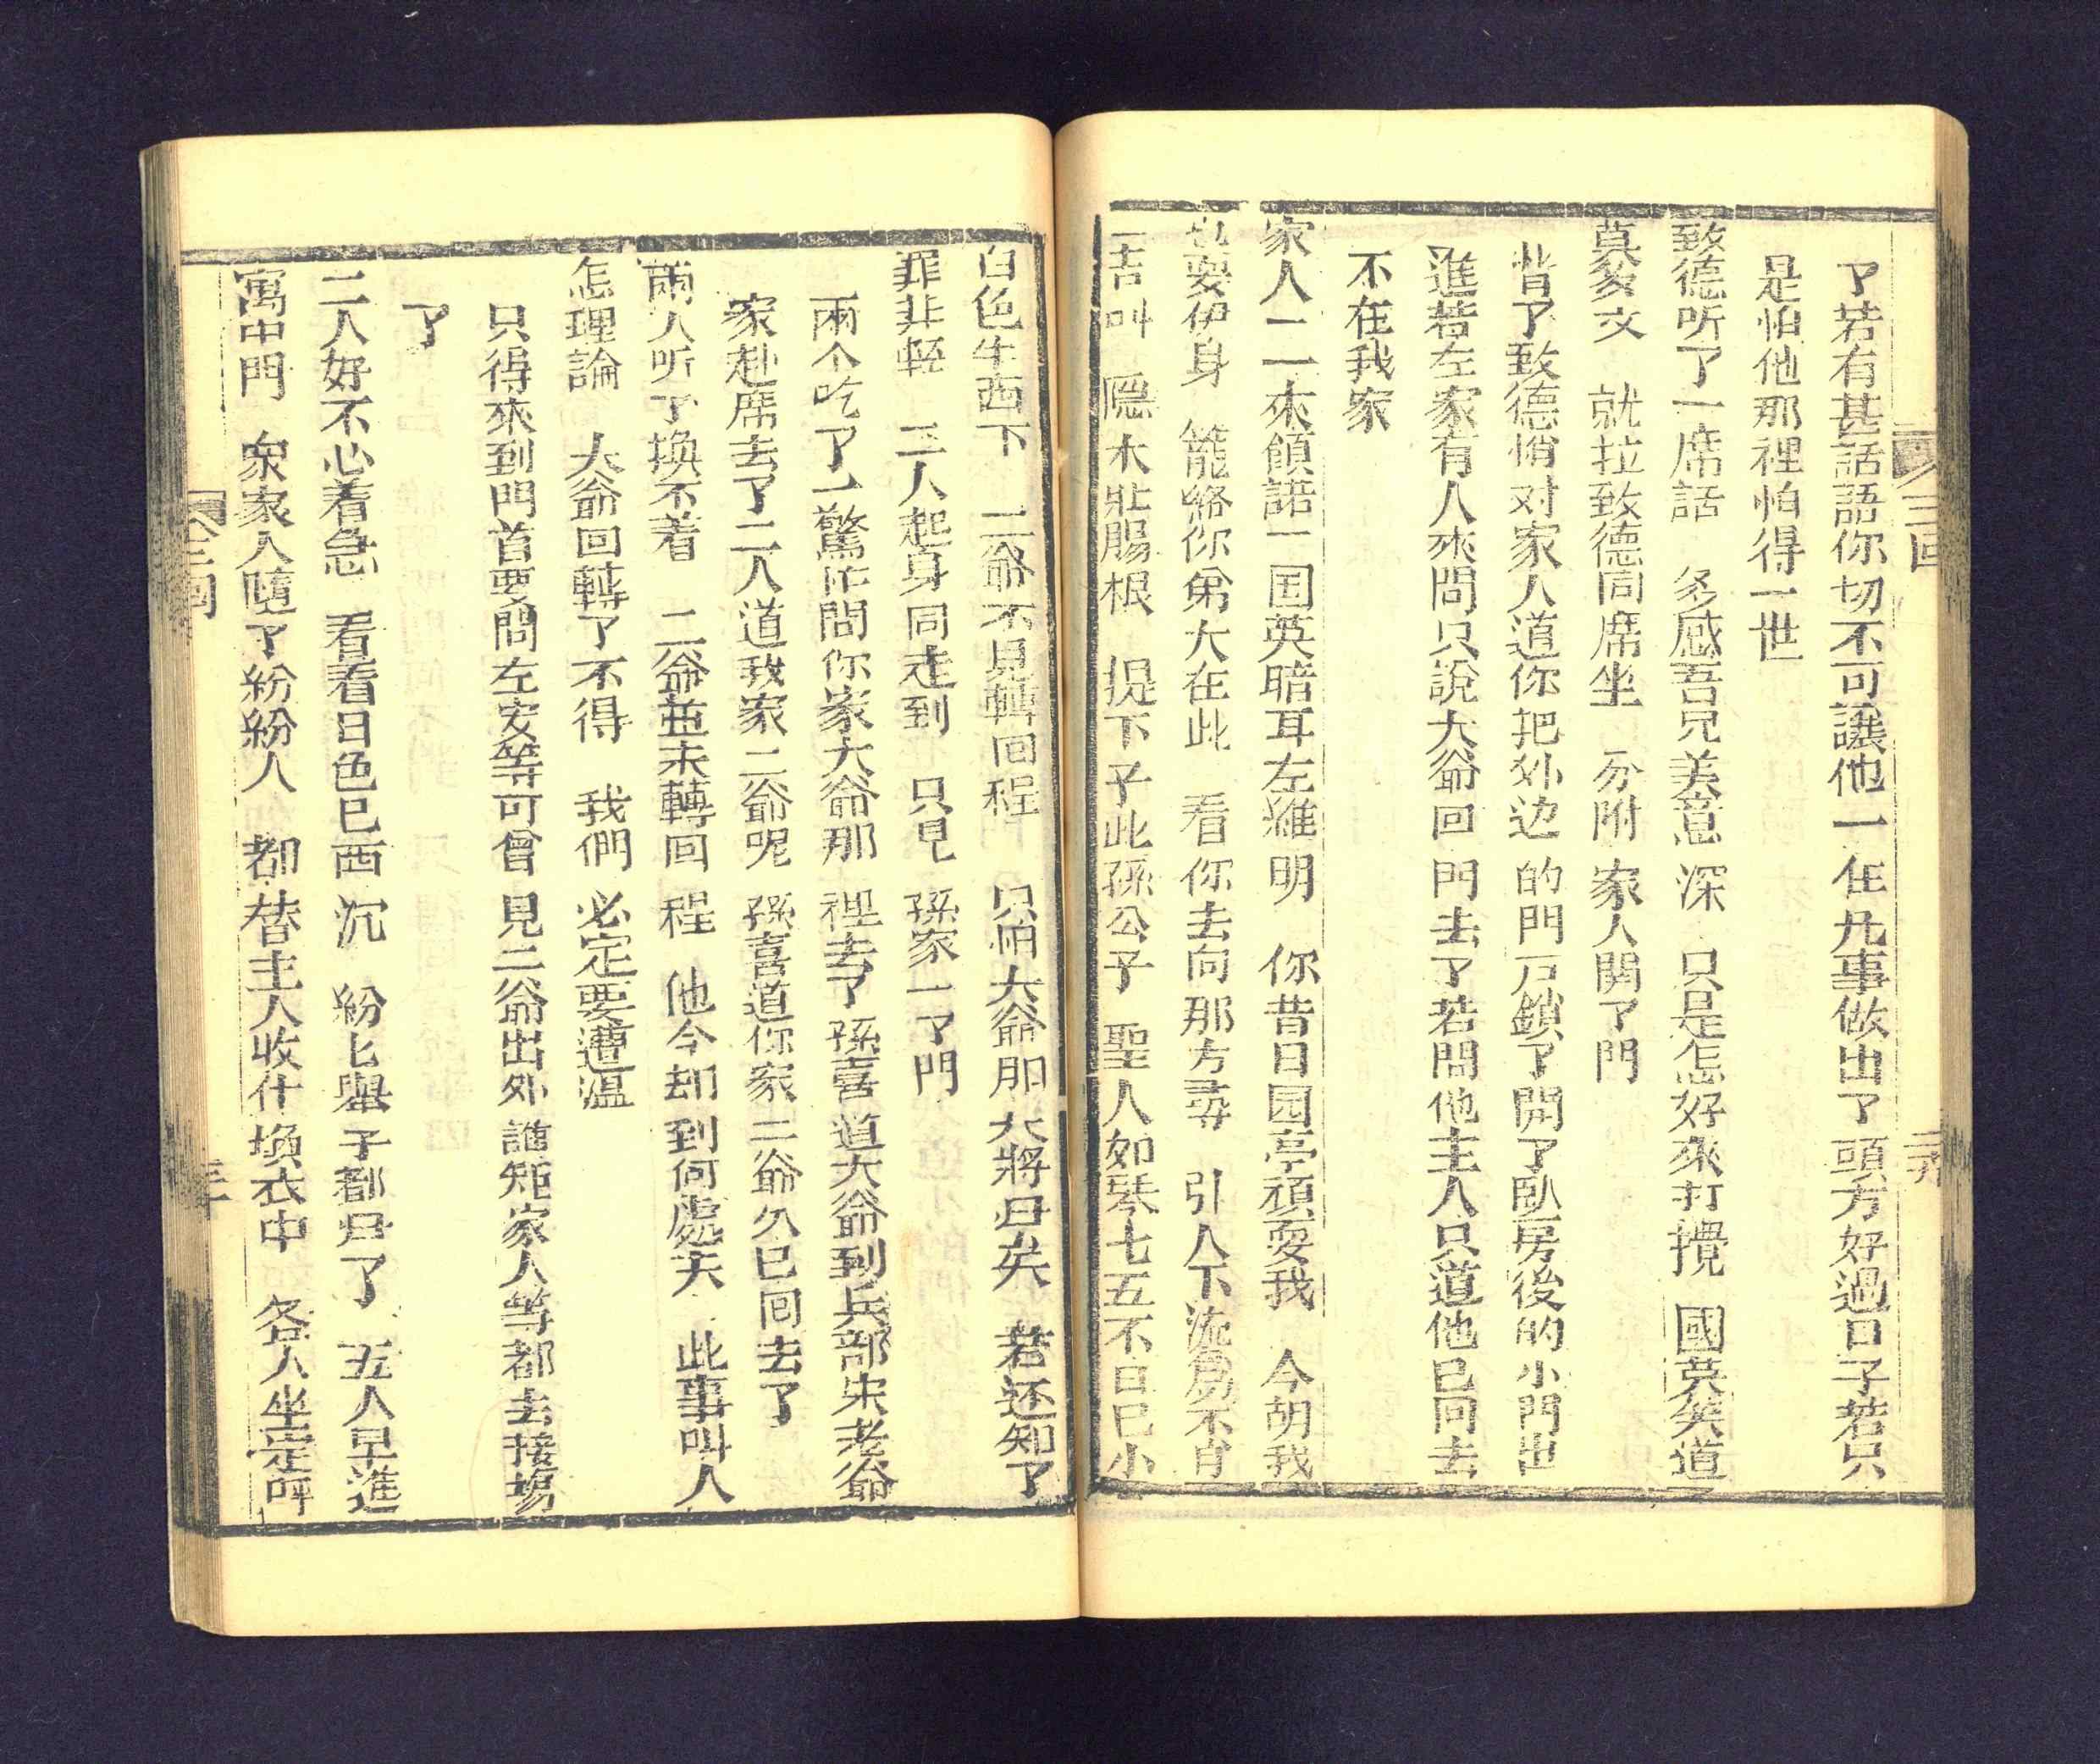 了若有甚話語你切不可讓他一任凡事做出了頭方好過日子若只
是怕他那裡怕得一世
致德听了一席話 多感吾兄美意深 只是怎好來打攪 國英笑道
莫多文 就拉致德同席坐 分附家人関了門
昔了致德悄对家人道你把外边的門戸鎖了開了臥房後的小門出
進若左家有人來問只說大爺回門去了若問他主人只道他已回去
不在我家
家人一一來領諾 国英暗耳左維明 你昔日园亭頑耍我 今朝我
也要伊身 籠絡你弟大在此 看你去向那方尋 引入下流爲不肖
叫 隱木壯腸根 提下子此孫公子 聖人如琴七五不日已小
白色牛西下 二爺不見轉回程 只怕大爺那 大將毋矣 若还知了
罪非輕 三人起身同走到 只見孫家一了門
兩个吃了一驚忙問你家大爺那裡去了孫喜道大爺到兵部宋老爺
家赴席去了二人道我家二爺呢孫喜道你家二爺久已囘去了
兩人听了換不着 二爺並未轉回程 他今却到何處去 此事叫人
怎理論 大爺回轉了不得 我們必定要遭溫
只得來到門首要問左安等可曾見二爺出外誰矩家人等都去接塲
了
二人好不心着急 看看日色已西沉 紛匕舉子都毋了 五人早進
寓中門 衆家人隨了紛紛人 都替主人收什塤衣中 各人坐定呼